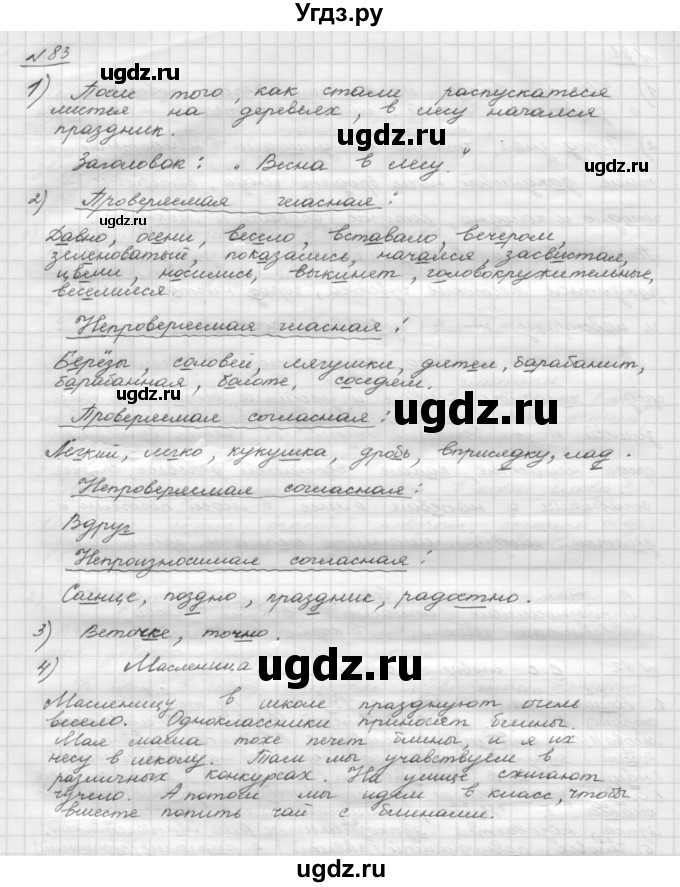 Угдз.ру
№83
1) После того, как стали распускаться
листья на деревьях, в лесу начался
праздник.
Заголовок: „Весна в лесу."
2) Проверяемая гласная:
Давно, осени, весело, вставало, вечером,
зеленоватый, показались, начался, засвистал,
цвели, носились, выкинет, головокружительные,
веселишься.
Непроверяемая гласная:
Берёзы, соловей, лягушки, дятел, барабанит,
барабанная, болоте, соседям.
Проверяемая согласная:
Легкий, легко, кукушка, дробь, вприсядку, лад.
Непроверяемая согласная:
Вдруг
Непроизносимая согласная:
Солнце, поздно, праздник, радостно.
3) Веточке, точно.
4) Масленица
Масленицу в школе празднуют очень
весело. Одноклассники приносят блины.
Моя мама тоже печет блины, и я их
несу в школу. Там мы учавствуем в
различных конкурсах. На улице сжигают
чучело. А потом мы идем в класс, чтобы
вместе попить чай с блинами.
ugdz.ru
ugdz.ru
ugdz.ru
ugdz.ru
ugdz.ru
ugdz.ru
ugdz.ru
ugdz.ru
ugdz.ru
ugdz.ru